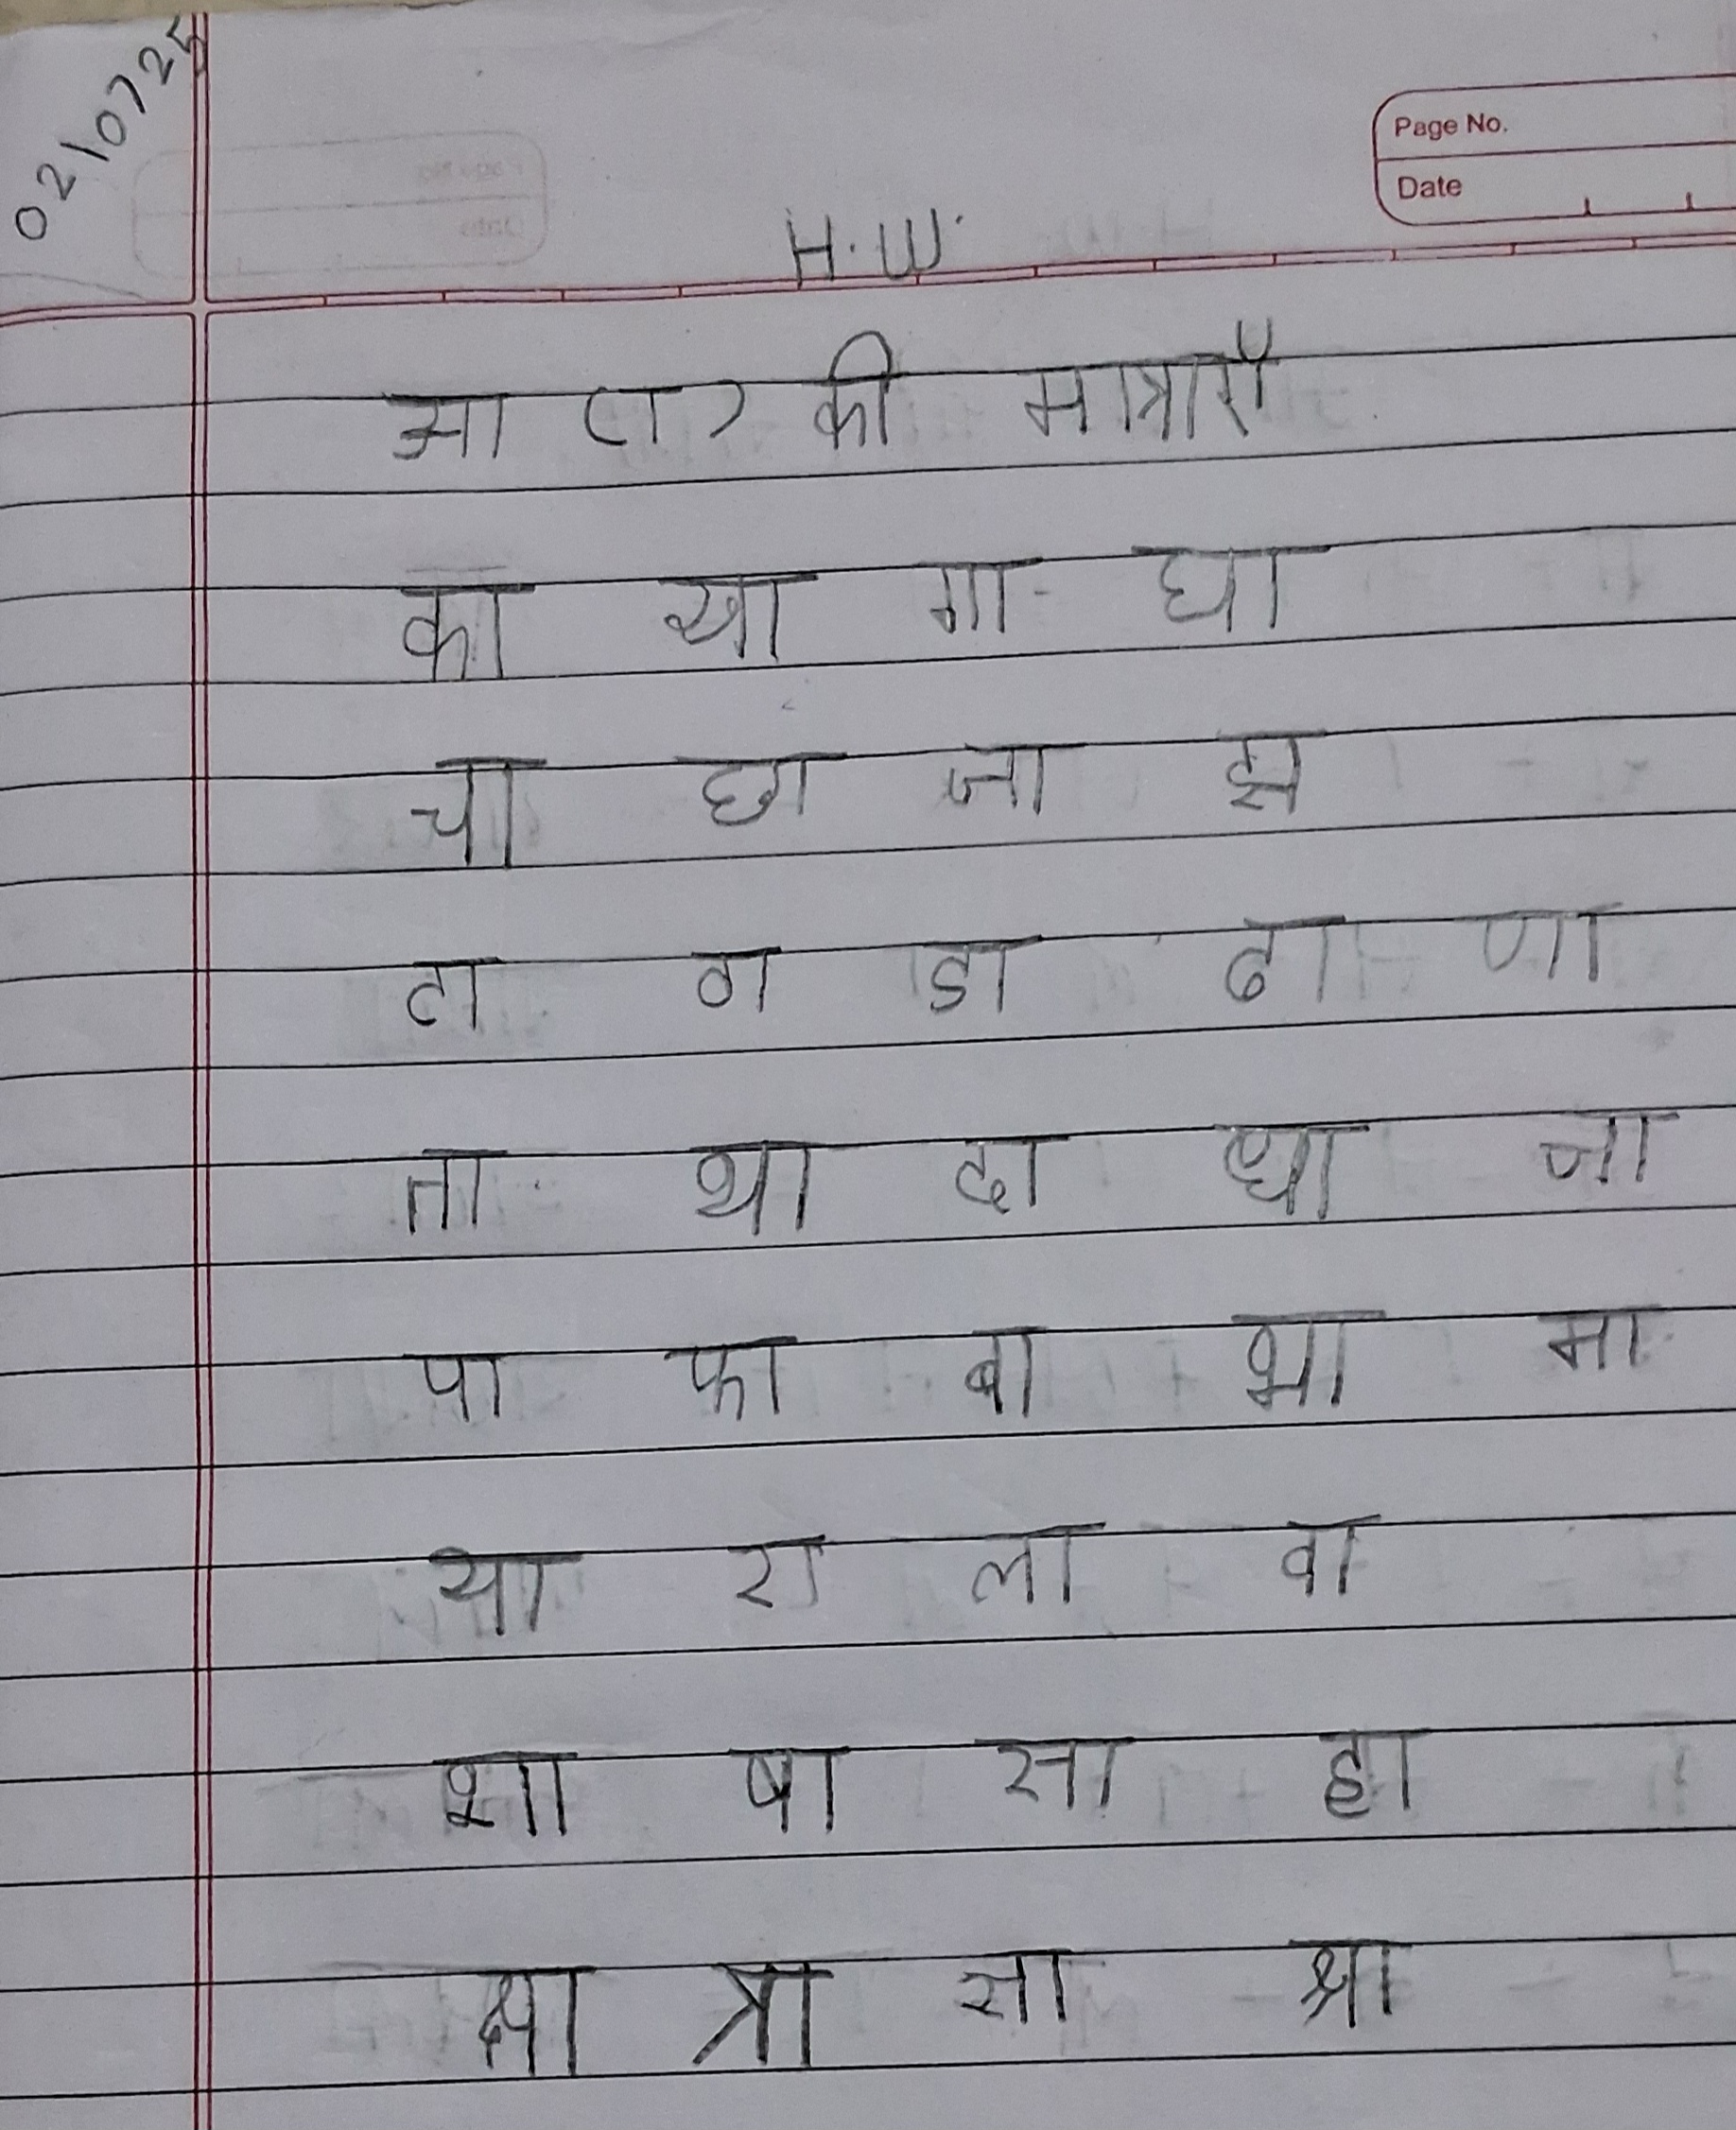 02/07/25
Page No.
Date
H.W.
आ (ा) की मात्राएँ
का खा गा घा
चा छा जा झा
टा ठा डा ढा णा
ता था दा धा ना
पा फा बा भा मा
या रा ला वा
शा षा सा हा
क्षा त्रा ज्ञा श्रा